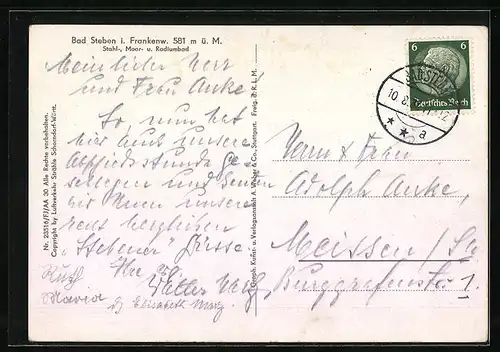 Bad Steben i. Frankenw. 581 m ü. M.
Stahl-, Moor- u. Radiumbad
Mein lieber Herr
und Frau Anke
So, nun hat
hier auch unsere
Abschiedsstunde ge-
schlagen und senden
wir Ihnen unsere
recht herzlichen
"Stebener" Grüsse.
Ihre
Walter Marg.
Elisabeth Marg.
Maria
Nr. 23516/FJ/AA 30 Alle Rechte vorbehalten.
Copyright by Luftverkehr Strähle Schorndorf-Württ.
Graph. Kunst- u. Verlagsanstalt A. Weber & Co., Stuttgart. Freig. d. R.L.M.
6 6
Deutsches Reich
BAD STEBEN
10.8.
a
Herrn & Frau
Adolph Anke,
Meissen/Sa
Burggrafenstr 1.